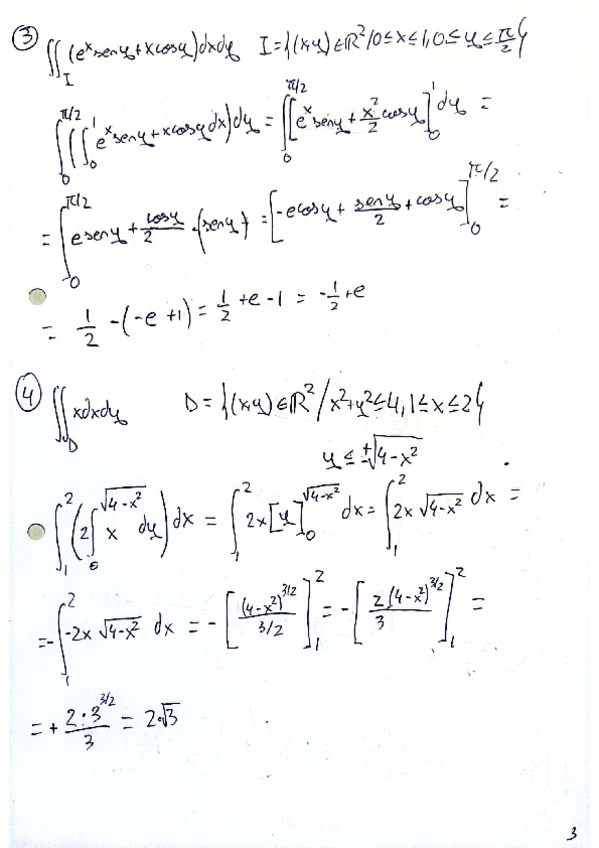 ③ ∬_I (e^x sen y + x cos y) dx dy   I = {(x,y) ∈ ℝ² / 0 ≤ x ≤ 1, 0 ≤ y ≤ π/2}
∫_0^{π/2} (∫_0^1 e^x sen y + x cos y dx) dy = ∫_0^{π/2} [e^x sen y + x²/2 cos y]_0^1 dy =
= ∫_0^{π/2} e sen y + cos y/2 - (sen y) = [-e cos y + sen y/2 + cos y]_0^{π/2} =
= 1/2 - (-e + 1) = 1/2 + e - 1 = -1/2 + e
④ ∬_D x dx dy   D = {(x,y) ∈ ℝ² / x² + y² ≤ 4, 1 ≤ x ≤ 2}
y ≤ ±√(4-x²)
∫_1^2 (2∫_0^{√(4-x²)} x dy) dx = ∫_1^2 2x [y]_0^{√(4-x²)} dx = ∫_1^2 2x √(4-x²) dx =
= -∫_1^2 -2x √(4-x²) dx = -[(4-x²)^{3/2} / 3/2]_1^2 = -[2(4-x²)^{3/2} / 3]_1^2 =
= + 2·3^{3/2} / 3 = 2·√3
3